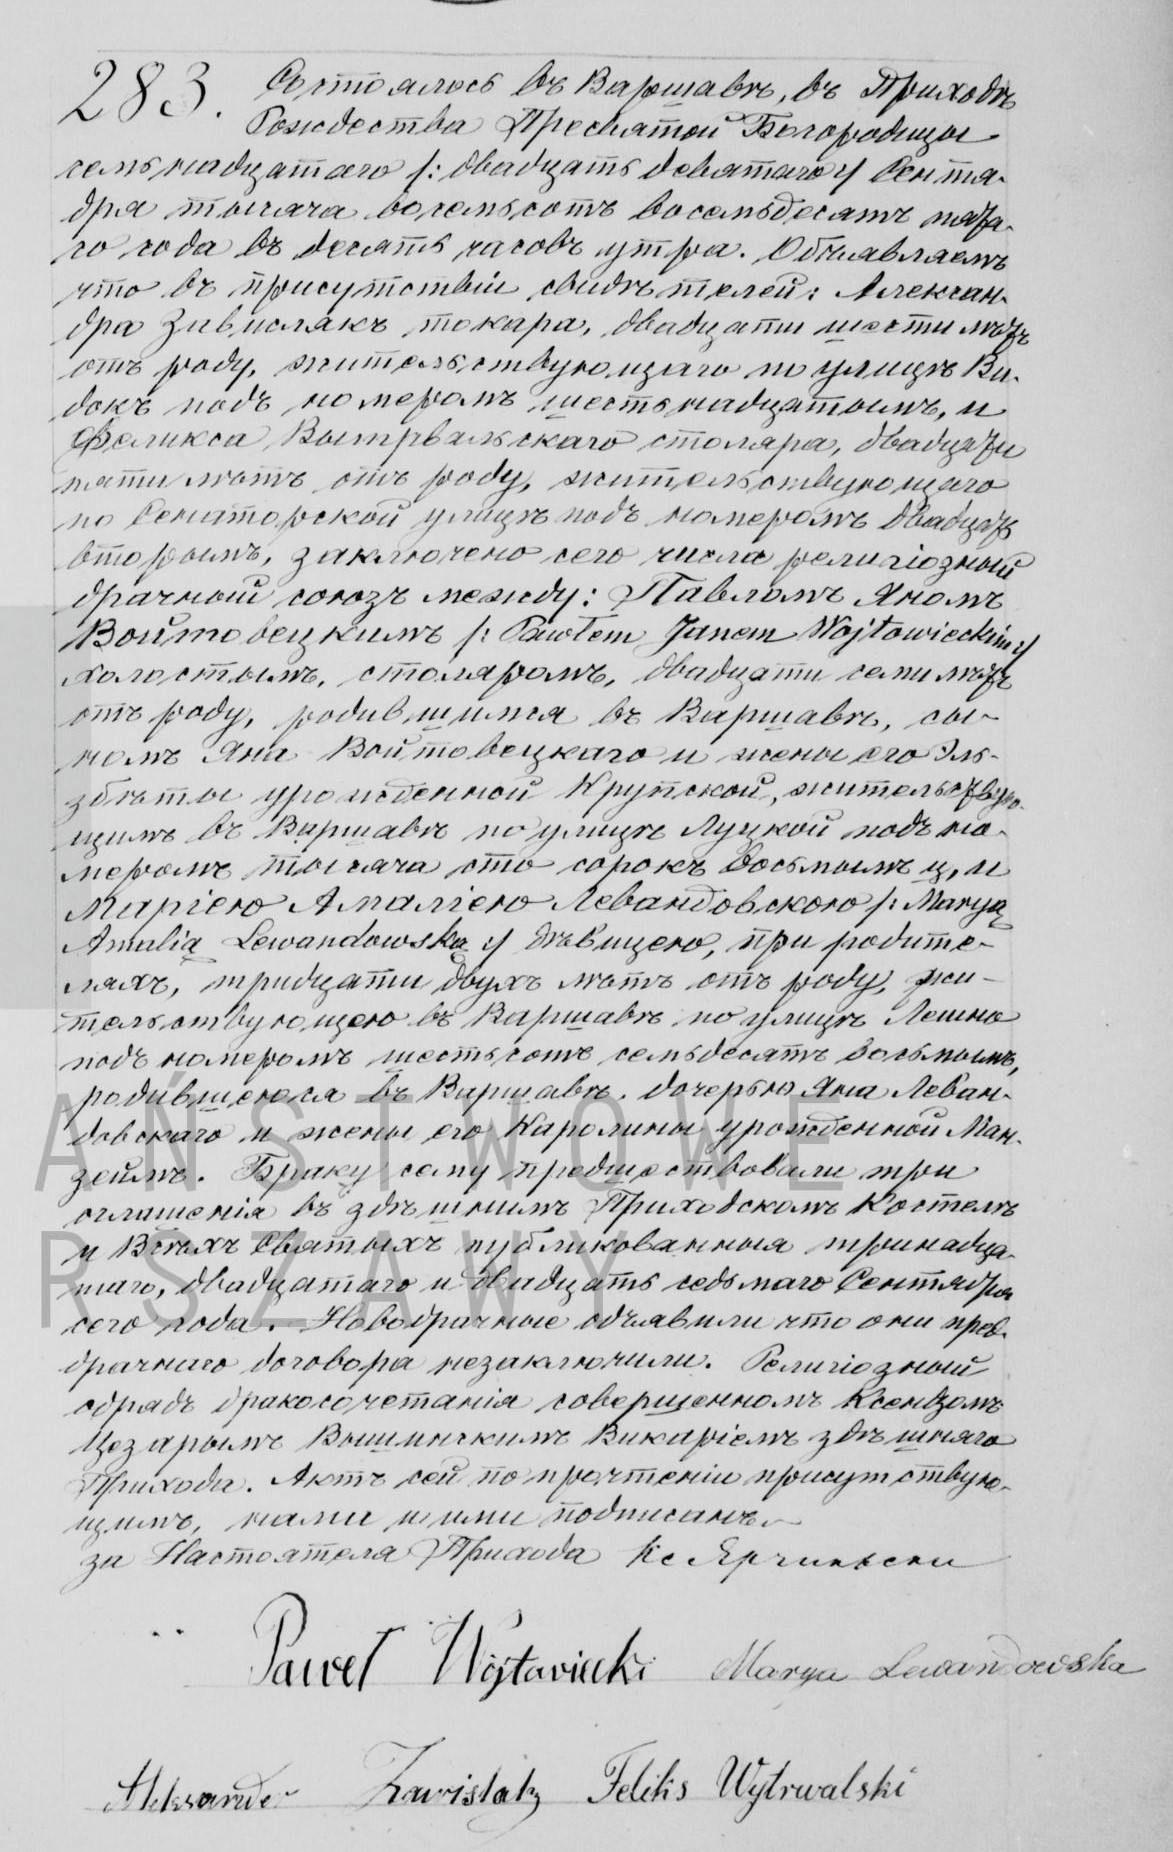 283. Состоялось въ Варшавѣ, въ Приходѣ
Рождества Пресвятой Богородицы
семьнадцатаго /: двадцать девятаго :/ Сентя-
бря тысяча восемьсотъ восемьдесятъ пята-
го года въ десять часовъ утра. Объявляемъ
что въ присутствіи свидѣтелей: Алексан-
дра Зависляка токара, двадцати шести лѣтъ
отъ роду, жительствующаго по улицѣ Ви-
докъ подъ номеромъ шестьнадцатымъ, и
Феликса Вытрвальскаго столяра, двадцати
пяти лѣтъ отъ роду, жительствующаго
по Сенаторской улицѣ подъ номеромъ двадцать
вторымъ, заключено сего числа религіозный
брачный союзъ между: Павломъ Яномъ
Войтовецкимъ /: Pawłem Janem Wojtowieckim :/
холостымъ, столяромъ, двадцати семи лѣтъ
отъ роду, родившимся въ Варшавѣ, сы-
номъ Яна Войтовецкаго и жены его Эль-
збѣты урожденной Крупской, жительствую-
щимъ въ Варшавѣ по улицѣ Луцкой подъ но-
меромъ тысяча сто сорокъ восьмымъ ц, и
Маріею Амаліею Левандовскою /: Maryą
Amalią Lewandowską :/ дѣвицею, при родите-
ляхъ, тридцати двухъ лѣтъ отъ роду, жи-
тельствующею въ Варшавѣ по улицѣ Лешно
подъ номеромъ шестьсотъ семьдесятъ восьмымъ,
родившеюся въ Варшавѣ, дочерью Яна Леван-
довскаго и жены его Каролины урожденной Ман-
зеймъ. Браку сему предшествовали три
оглашенія въ здѣшнимъ Приходскомъ Костелѣ
и Всѣхъ Святыхъ публикованныя тринадца-
таго, двадцатаго и двадцать седьмаго Сентября
сего года. Новобрачные объявили что они пред-
брачнаго договора незаключили. Религіозный
обрядъ бракосочетанія совершенномъ Ксендзомъ
Цезарымъ Вышинскимъ Викаріемъ здѣшняго
Прихода. Актъ сей по прочтеніи присутствую-
щимъ, нами и ими подписанъ.
за Настоятеля Прихода Кс
Paweł Wojtowiecki Marya Lewandowska
Aleksander Zawislak Feliks Wytrwalski
AŃSTWOWE
RSZAWY